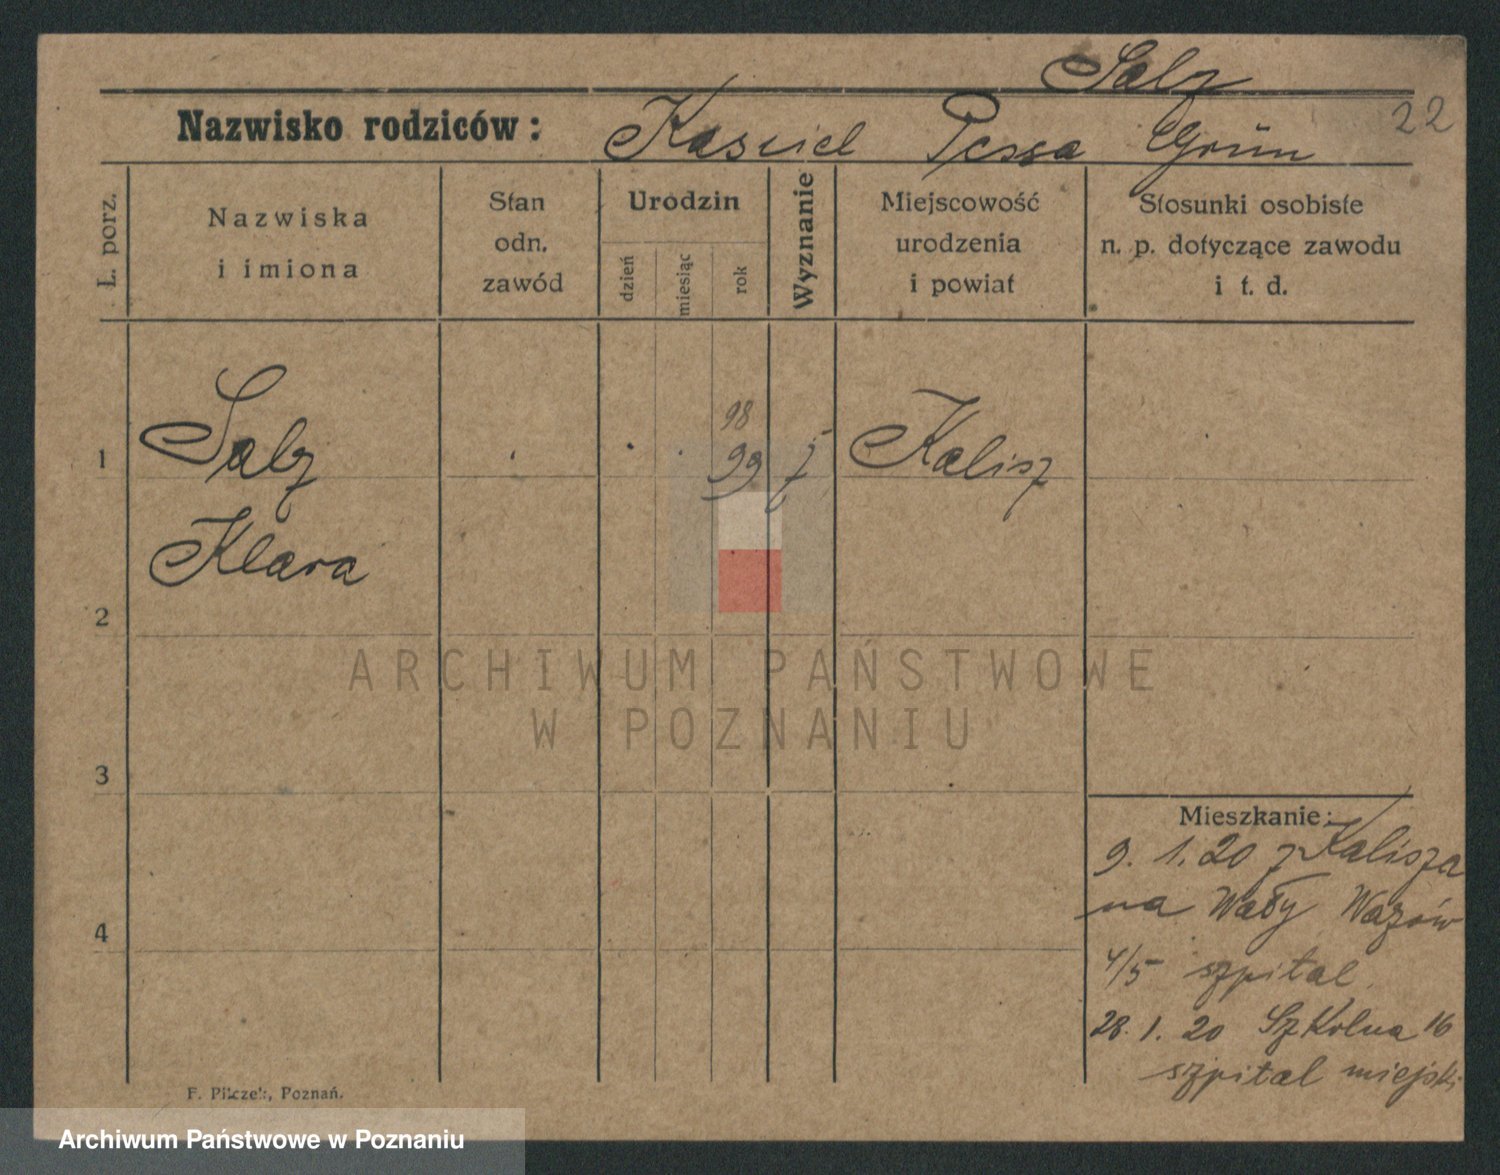 Salz
Nazwisko rodziców: Kasriel Pessa Grün 22
L. porz.
Nazwiska
i imiona
Stan
odn.
zawód
Urodzin
dzień
miesiąc
rok
Wyznanie
Miejscowość
urodzenia
i powiat
Stosunki osobiste
n. p. dotyczące zawodu
i t. d.
98
1 Salz 99 ż Kalisz
Klara
2
3
4
Mieszkanie:
9. 1. 20 z Kalisza
na Wały Wazów
4/5 szpital
28. 1. 20 Szkolna 16
szpital miejski
F. Pilczek, Poznań.
ARCHIWUM PAŃSTWOWE
W POZNANIU
Archiwum Państwowe w Poznaniu